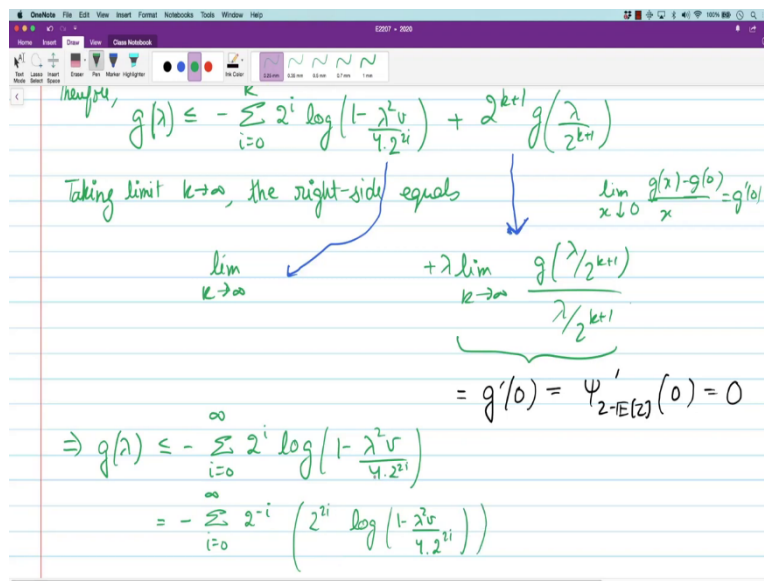 OneNote File Edit View Insert Format Notebooks Tools Window Help 100%
E2207 - 2020
Home Insert Draw View Class Notebook
Text Mode Lasso Select Insert Space Eraser Pen Marker Highlighter 0.25 mm 0.35 mm 0.5 mm 0.7 mm 1 mm Ink Color
Therefore,
g(λ) ≤ - Σ_{i=0}^{k} 2^i log(1 - λ²v / 4.2^{2i}) + 2^{k+1} g(λ / 2^{k+1})
Taking limit k→∞, the right-side equals
lim_{x↓0} (g(x)-g(0)) / x = g'(0)
lim_{k→∞} + λ lim_{k→∞} g(λ/2^{k+1}) / (λ/2^{k+1})
= g'(0) = ψ'_{Z-𝔼[Z]}(0) = 0
⇒ g(λ) ≤ - Σ_{i=0}^{∞} 2^i log(1 - λ²v / 4.2^{2i})
= - Σ_{i=0}^{∞} 2^{-i} (2^{2i} log(1 - λ²v / 4.2^{2i}))